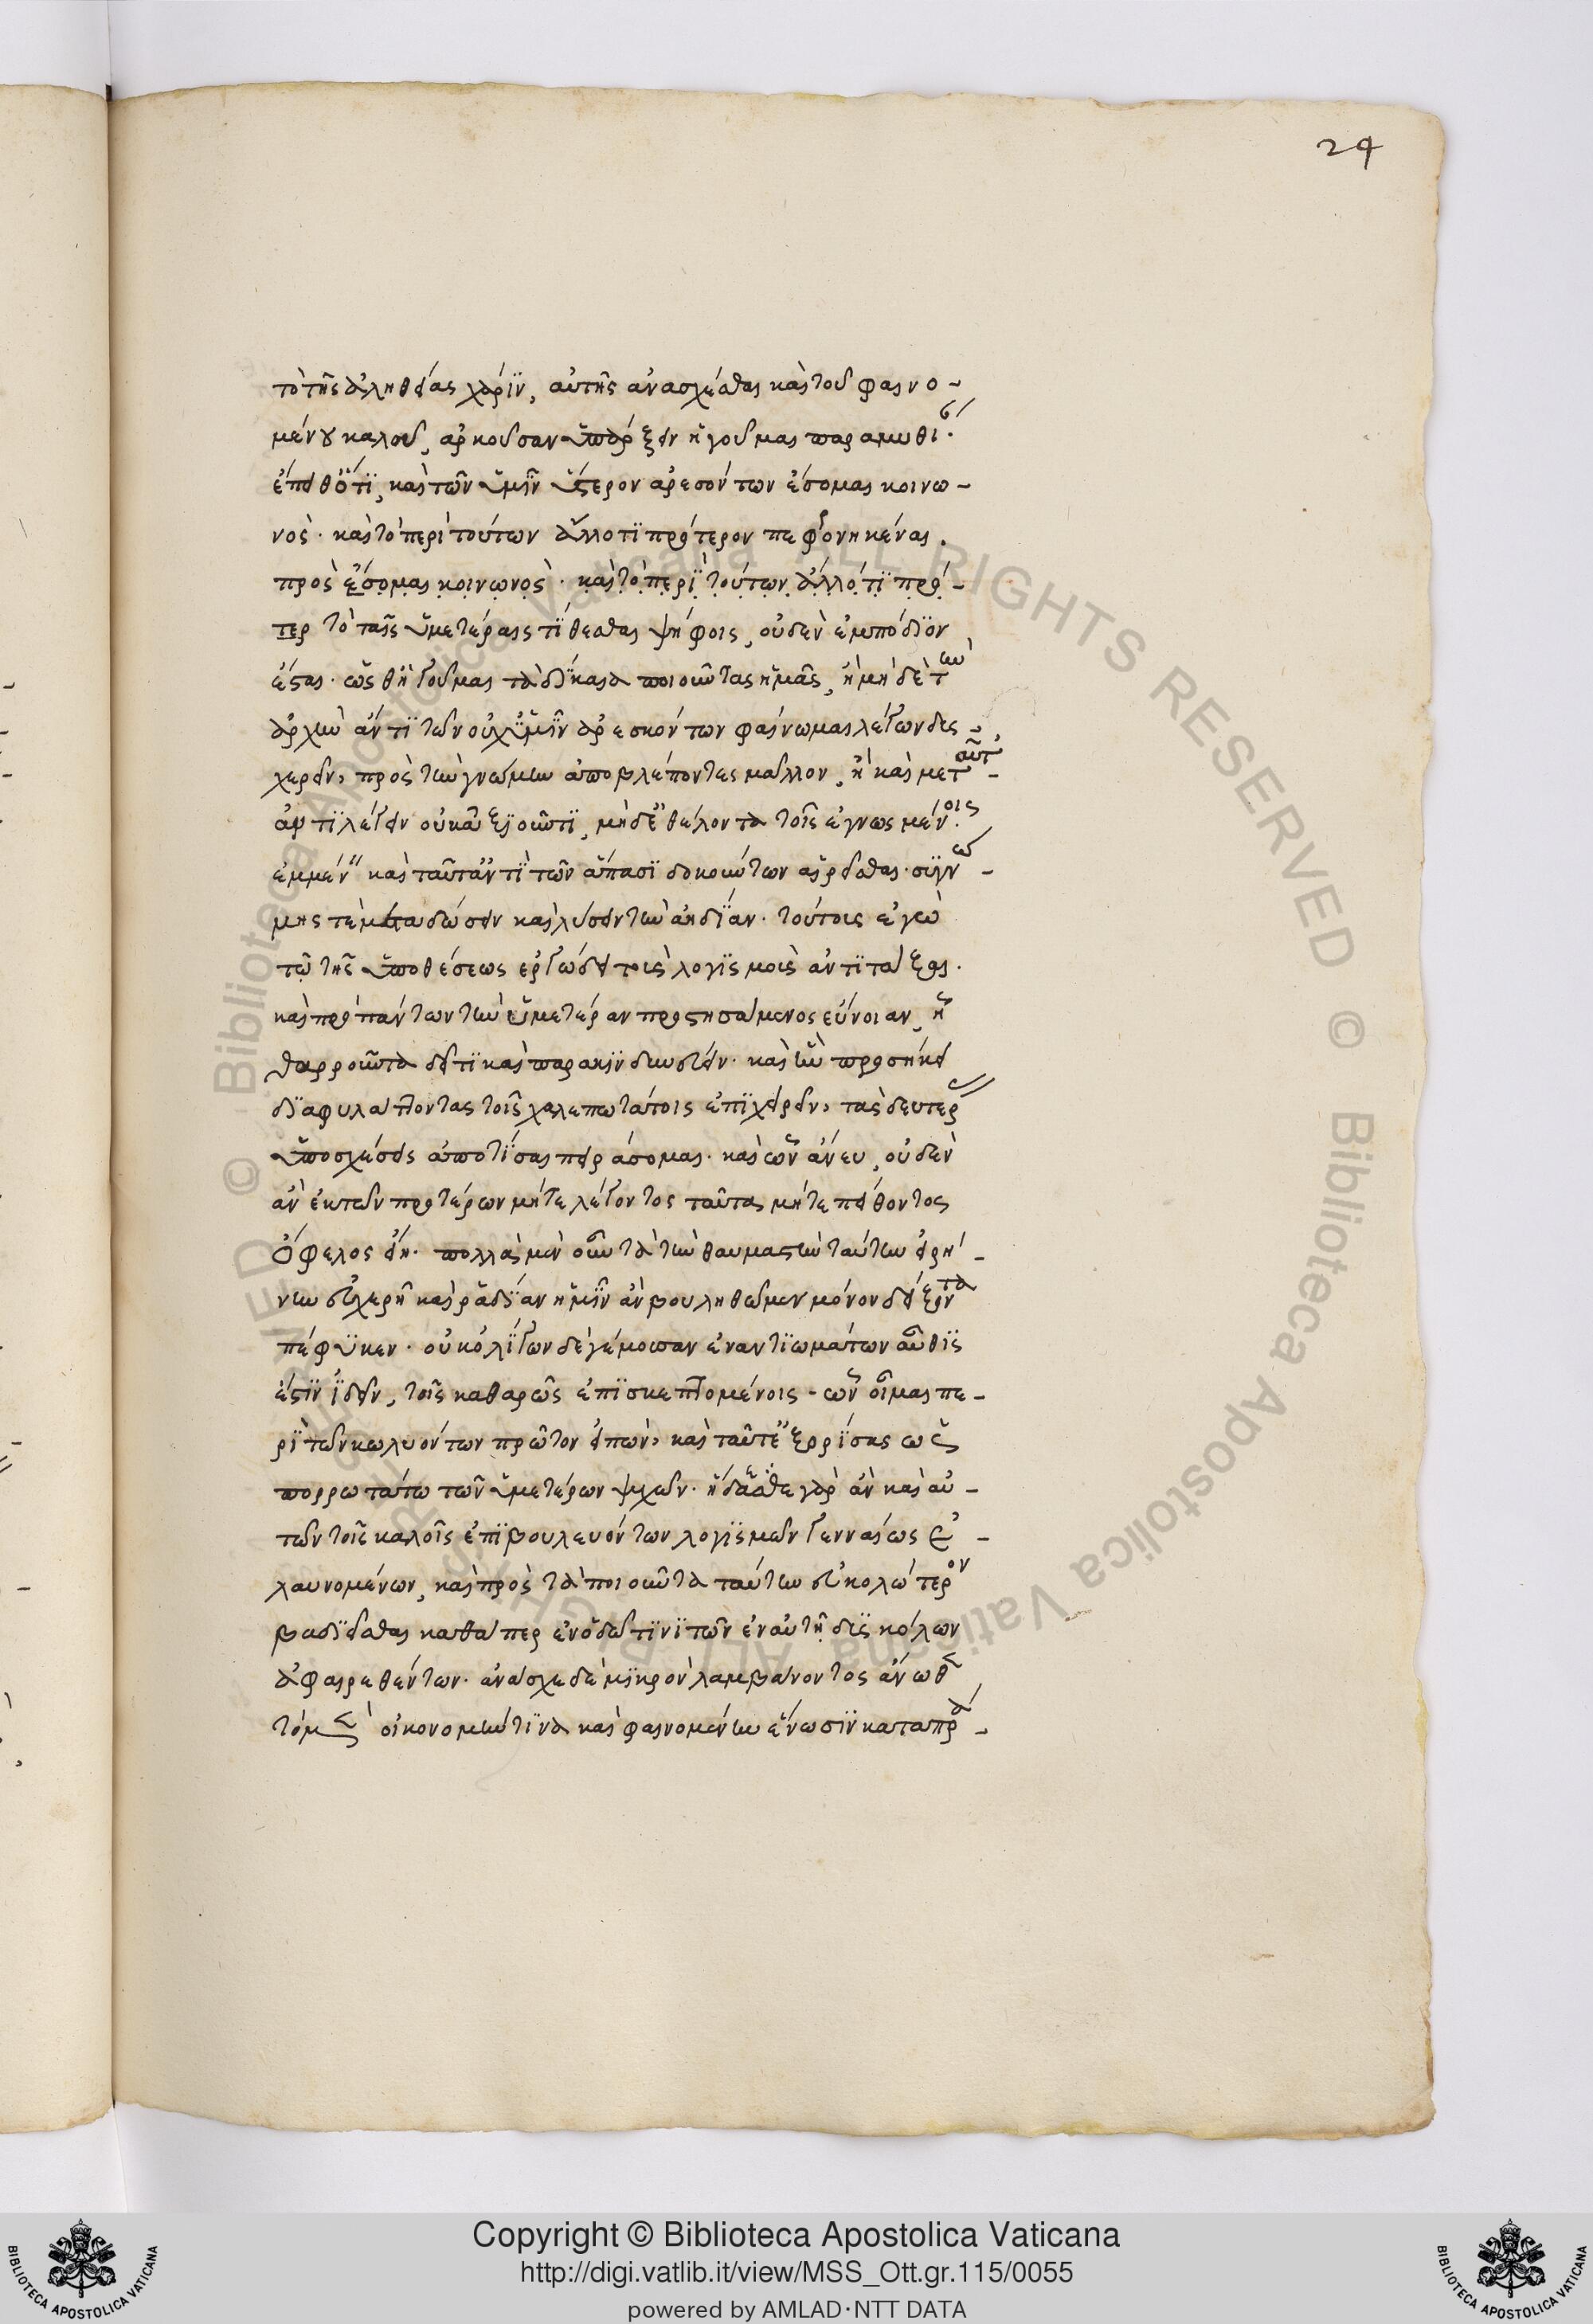 24
τὸ τῆς ἀληθείας χάριν, αὐτῆς ἀνασχέσθαι καὶ τοῦ φαινο-
μένου καλοῦ, ἀρκοῦσαν ὑπάρξειν ἡγοῦμαι παραμυθί.
ἐπειθ' ὅτι, καὶ τῶν ὑμῖν ὕστερον ἀρεσόντων ἔσομαι κοινω-
νός. καὶ τὸ περὶ τούτων ἄλλο τι πρότερον πεφρονηκέναι.
πρὸς ἔσομαι κοινωνός. καὶ τὸ περὶ τούτων ἄλλό τι πρό-
τερ τὸ ταῖς ὑμετέραις τίθεσθαι ψήφοις, οὐδὲν ἐμπόδιον
ἔσται. ὥσθ' ἡγοῦμαι τὰ δίκαια ποιοῦντας ἡμᾶς, ἢ μηδὲ τὴν
ἀρχὴν ἀντὶ τῶν οὐχ ὑμῖν ἀρεσκόντων φαίνωμαι λέγων δυς-
χερᾶν, πρὸς τὴν γνώμην ἀποβλέποντες μᾶλλον, ἢ καὶ μετ αὐτ-
ἀντιλέγειν οὐκ ἀξιοῦντι, μηδ' ἐθέλοντα τοῖς ἐγνωσμένοις
ἐμμέν καὶ ταῦτ' ἀντὶ τῶν ἅπασι δοκούντων αἱρεῖσθαι. συγνώ-
μης τε μεταδώσειν καὶ λύσειν τὴν ἀηδίαν. τούτοις ἐγὼ
τῷ τῆς ὑποθέσεως ἐργώδει τοῖς λογισμοῖς ἀντιτάξαι.
καὶ πρὸ πάντων τὴν ὑμετέραν προστησάμενος εὔνοιαν, ἣ
θαρροῦντα δεῖ τι καὶ παρακινδυνεύειν. καὶ ἣν προσήκει
διαφυλάττοντας τοῖς χαλεπωτάτοις ἐπιχειρεῖν, τὰς δευτέρ
ὑποσχέσεις ἀποτίσαι πειράσομαι. καὶ ὧν ἄνευ, οὐδὲν
ἂν ἐκ τῶν προτέρων μήτε λέγοντος ταῦτα μήτε πείθοντος
ὄφελος εἴη. πολλὰ μὲν οὖν τὰ τὴν θαυμαστὴν ταύτην εἰρή-
νην εὐχερῆ καὶ ῥαδίαν ἡμῖν ἂν βουληθῶμεν μόνον δεῖξαι τὰ
πέφυκεν. οὐκ ὀλίγων δὲ γέμουσαν ἐναντιωμάτων αὖθις
ἔστιν ἰδεῖν, τοῖς καθαρῶς ἐπισκεπτομένοις. ὧν οἶμαι πε-
ρὶ τῶν κωλυόντων πρῶτον εἰπών, καὶ ταῦτ' ἐξορίσας ὡς
πορρωτάτω τῶν ὑμετέρων ψυχῶν. ᾔδεσθε γὰρ ἂν καὶ αὐ-
τῶν τοῖς καλοῖς ἐπιβουλευόντων λογισμῶν γενναίως ἐ-
λαυνομένων, καὶ πρὸς τὰ ποιοῦντα ταύτην εὐκολώτερον
βαδιεῖσθαι καθάπερ ἐν ὁδῷ τινι τῶν ἐν αὐτῇ δυσκόλων
ἀφαιρεθέντων. ἀνάσχεσθε μικρὸν λαμβάνοντος ἄνωθ
τόμ οἰκονομίαν τινὰ καὶ φαινομένην ἕνωσιν καταπρά-
Copyright © Biblioteca Apostolica Vaticana
http://digi.vatlib.it/view/MSS_Ott.gr.115/0055
powered by AMLAD·NTT DATA